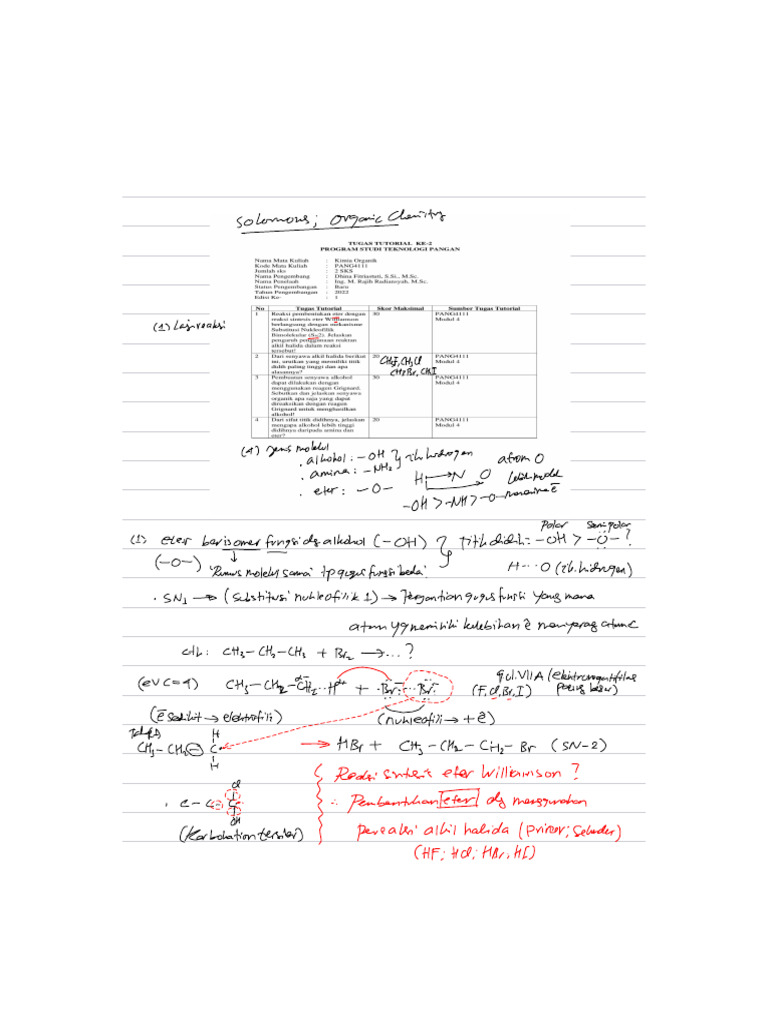 Solomons; Organic Chemistry
TUGAS TUTORIAL KE-2
PROGRAM STUDI TEKNOLOGI PANGAN
Nama Mata Kuliah : Kimia Organik
Kode Mata Kuliah : PANG4111
Jumlah sks : 2 SKS
Nama Pengembang : Dhina Fitriastuti, S.Si., M.Sc.
Nama Penelaah : Ing. M. Rajih Radiansyah, M.Sc.
Status Pengembangan : Baru
Tahun Pengembangan : 2022
Edisi Ke- : 1
No Tugas Tutorial Skor Maksimal Sumber Tugas Tutorial
1 Reaksi pembentukan eter dengan 30 PANG4111
reaksi sintesis eter Williamson Modul 4
berlangsung dengan mekanisme
Substitusi Nukleofilik
Bimolekular (SN2). Jelaskan
pengaruh penggunaan reaktan
alkil halida dalam reaksi
tersebut!
2 Dari senyawa alkil halida berikut 20 PANG4111
ini, urutkan yang memiliki titik Modul 4
didih paling tinggi dan apa
alasannya?
CH3F, CH3Cl
CH3Br, CH3I
3 Pembuatan senyawa alkohol 30 PANG4111
dapat dilakukan dengan Modul 4
menggunakan reagen Grignard.
Sebutkan dan jelaskan senyawa
organik apa saja yang dapat
direaksikan dengan reagen
Grignard untuk menghasilkan
alkohol!
4 Dari sifat titik didihnya, jelaskan 20 PANG4111
mengapa alkohol lebih tinggi Modul 4
didihnya daripada amina dan
eter?
(4) Jenis molekul
. alkohol : -OH } ik. hidrogen
. amina : -NH2
. eter : -O-
H N O
atom O
-OH > -NH > -O-
(1) eter berisomer fungsi dg alkohol (-OH) } titik didih : -OH > -O- ?
Polar Semipolar
(-O-)
Rumus molekul sama tp gugus fungsi beda
H···O (ik. hidrogen)
. SN1 → (Substitusi nukleofilik 1) → Pergantian gugus fungsi yang mana
atom yg memiliki kelebihan e menyerang atom C
CH3-CH2-CH3 + Br2 → ...?
(ev C=4) CH3-CH2-CH2 ··· H + Br ··· Br
gol. VIIA (elektronegatifitas
(F, Cl, Br, I) paling besar)
(e sedikit → elektrofili)
(nukleofili → + e)
CH3-CH2 C
H
H
→ HBr + CH3-CH2-CH2-Br (SN-2)
(Karbokation tersier)
Reaksi sintesis eter Williamson ?
∴ Pembentukan eter dg menggunakan
pereaksi alkil halida (Primer; Sekunder)
(HF; HCl; HBr, HI)